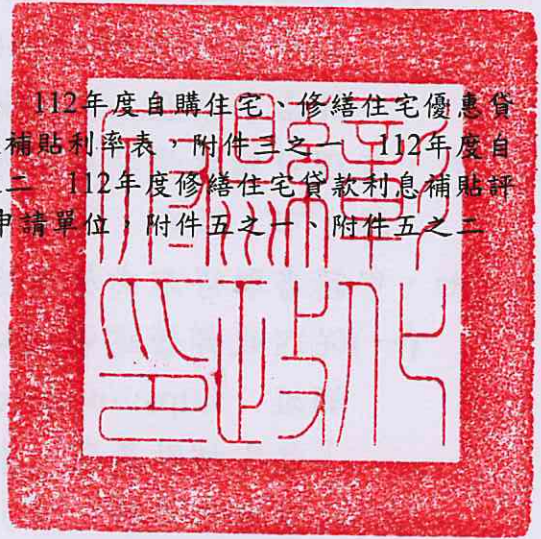 112年度自購住宅、修繕住宅優惠貸
補貼利率表，附件三之一 112年度自
二 112年度修繕住宅貸款利息補貼評
申請單位，附件五之一、附件五之二
彰化
縣政
府印